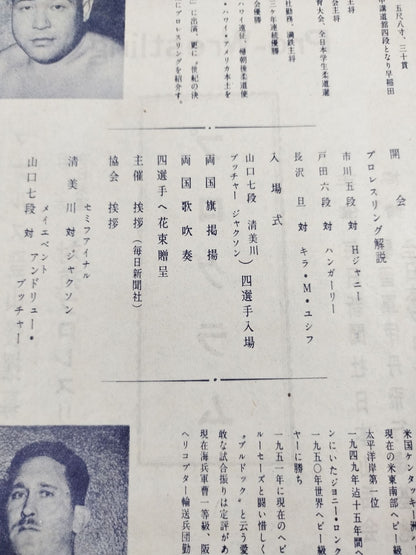 五尺八寸、三十貫
市講道館四段となり早稲田
会主将
育大会、全日本学生柔道選
社勤務、満鉄主将
三ケ年連続優勝
会優勝
ハワイ遠征、極朝後柔道使
・ハワイ・アメリカ本土を
〟に出演、更に〝世紀の決
にプロレスリングを紹介す。
開会
プロレスリング解説
市川五段 対 Hジャニー
戸田六段 対 ハンガーリー
長沢旦 対 キラ・M・ユシフ
入場式
山口七段 清美川
ブッチャー ジャクソン
) 四選手入場
両国旗掲揚
両国歌吹奏
四選手へ花束贈呈
主催 挨拶(毎日新聞社)
協会 挨拶
セミファイナル
清美川 対 ジャクソン
メイエベント
山口七段 対 アンドリュー・ブッチャー
米国ケンタキー洲
現在の米東南部ヘビー級
太平洋岸第一位
一九四九年迠十五年間ヘ
ンにいたジョニー・ロン
一九五〇年世界ヘビー級
ヤーに勝ち
一九五一年に現在のヘビ
ルーセーズと闘い惜し
〝ブルドック〟と云う愛
敢な試合振りは定評があ
現在海兵軍曹一等級、阪
ヘリコプター輸送兵団勤